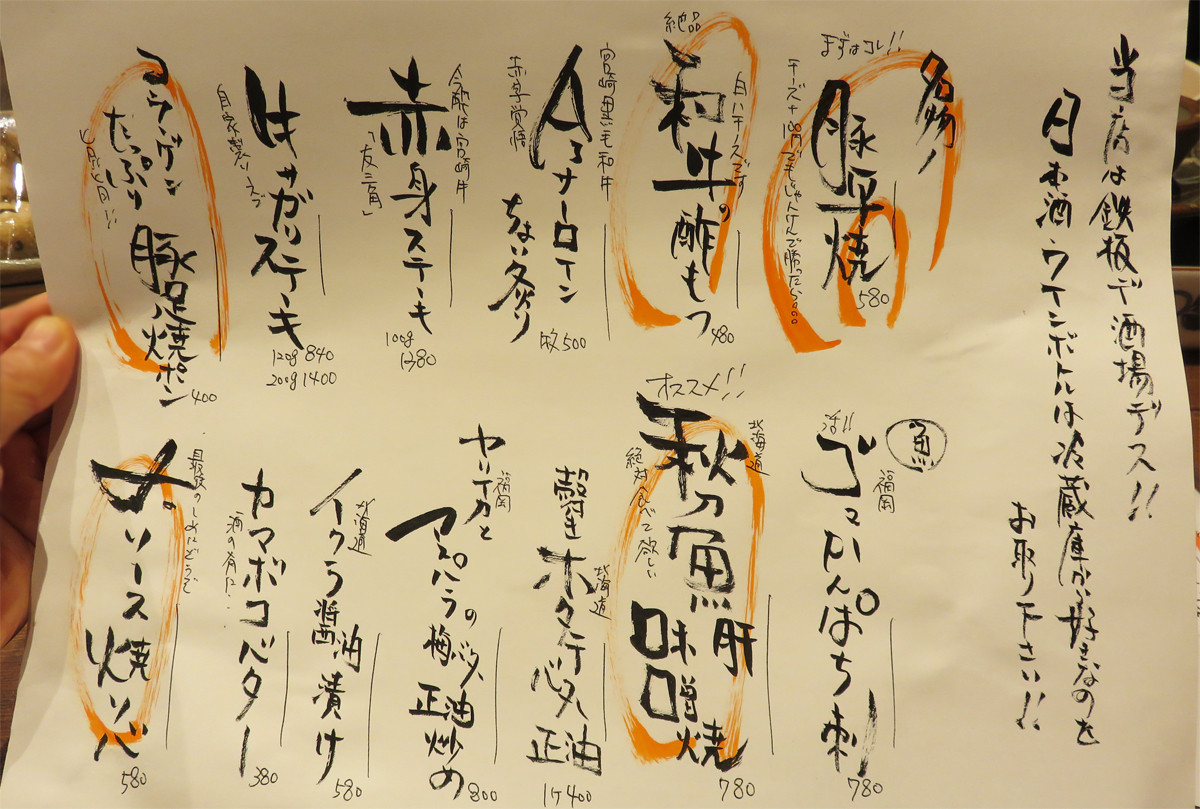 当店は鉄板デ酒場デス!!
日本酒、ワインボトルは冷蔵庫から好きなのを
お取り下さい!!
名物
まずはコレ!!
豚平焼
580
絶品
白ハチノスです
和牛の酢もつ
480
宮崎黒毛和牛
A5サーロイン
ちょい炙り
赤字覚悟
1枚500
今夜は宮崎牛
赤身ステーキ
「友三角」
100g
1380
牛サガリステーキ
自家製ソースで
120g 840
200g 1400
コラーゲン
たっぷり
豚足焼ポン
400
魚
福岡
活!!
ゴマかんぱち刺
780
北海道
オススメ!!
秋刀魚肝味噌焼
絶対食べて欲しい
780
北海道
殻付きホタテバター正油
1ケ400
福岡
ヤリイカと
アスパラの梅バター正油炒め
800
北海道
イクラ醤油漬け
580
カマボコバター
酒の肴に…
380
最後のしめにどうぞ
ソース焼ソバ
580